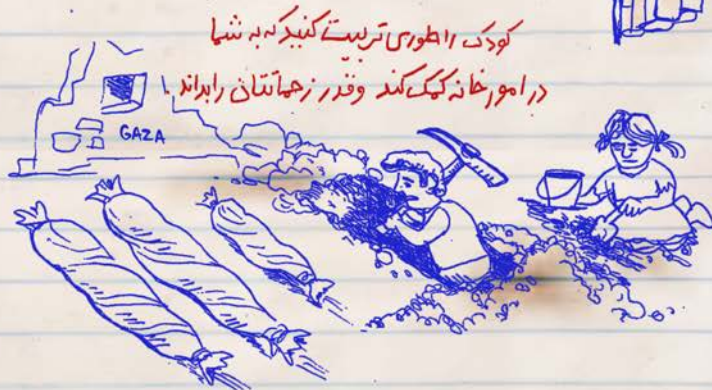 کودک را طوری تربیت کنید که به شما
در امور خانه کمک کند و قدر زحماتتان را بداند
GAZA